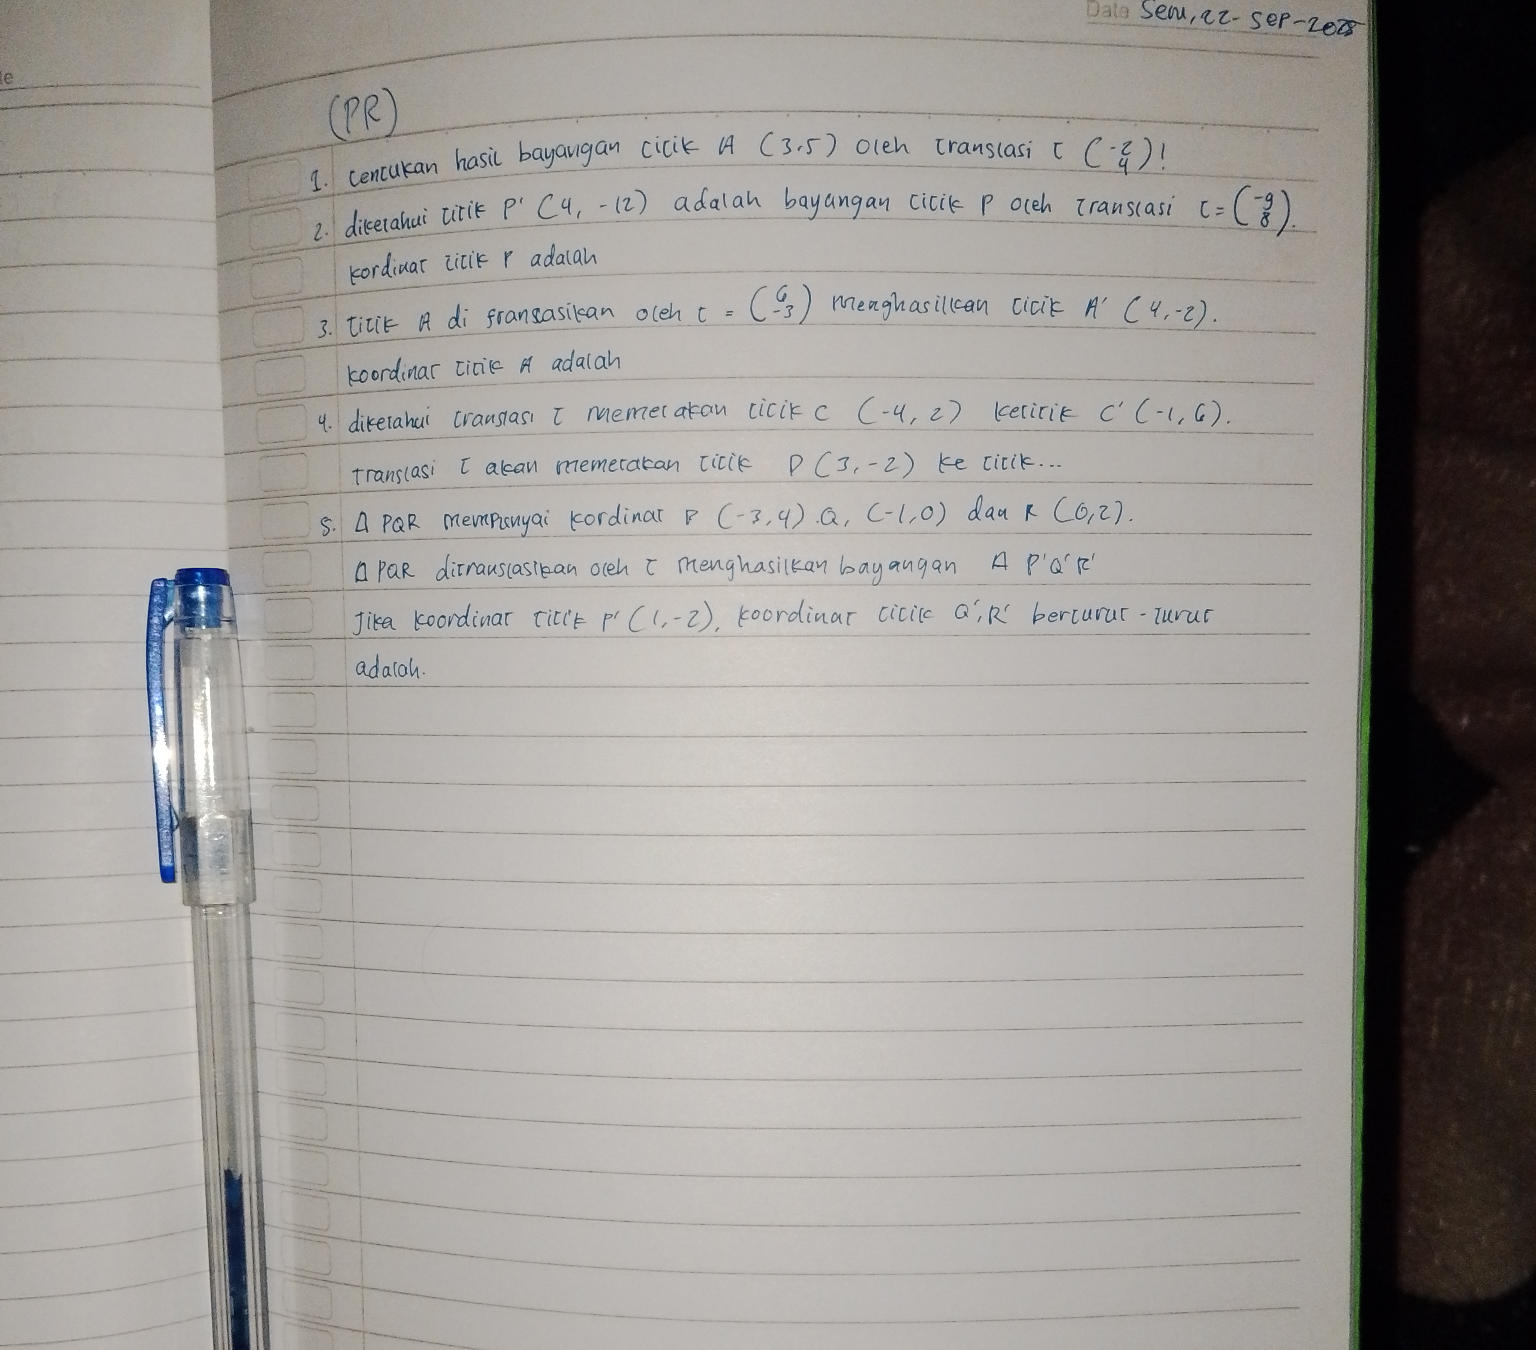 Date Sen, 22-Sep-2025
te
(PR)
1. tentukan hasil bayangan titik A (3,5) oleh translasi t (-2 4)!
2. diketahui titik P' (4, -12) adalah bayangan titik P oleh translasi t = (-9 8).
kordinat titik P adalah
3. titik A di fransasikan oleh t = (6 -3) menghasilkan titik A' (4,-2).
koordinat titik A adalah
4. diketahui translasi t memetakan titik C (-4, 2) ketitik C' (-1, 6).
translasi t akan memetakan titik D (3, -2) ke titik...
5. Δ PQR mempunyai kordinat P (-3,4) .Q, (-1,0) dan R (0,2).
Δ PQR ditranslasikan oleh t menghasilkan bayangan Δ P'Q'R'
Jika koordinat titik P' (1,-2), koordinat titik Q',R' berturut-turut
adalah.